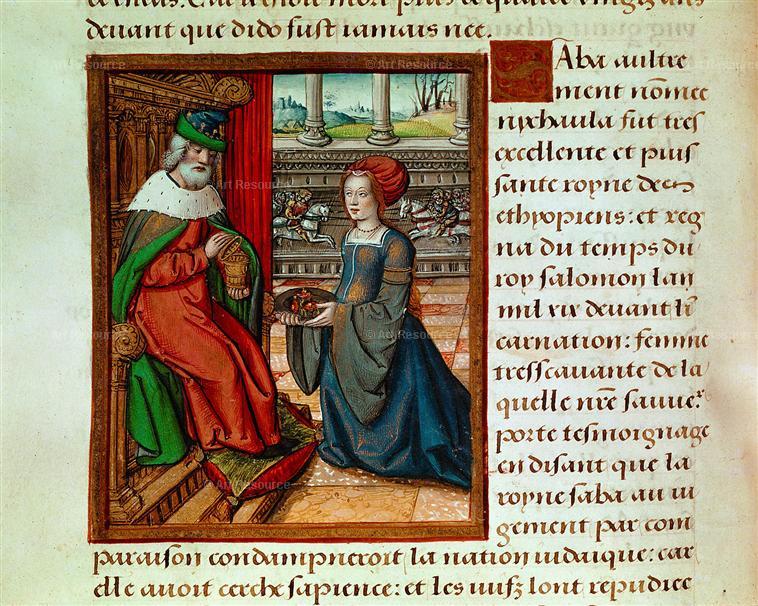 deuant que dido fust iamais nee.
Saba aultre
ment nõmee
nixhaula fut tres
excellente et puis
sante royne des
ethyopiens: et reg
na du temps du
roy salomon lan
mil xix deuant lĩ
carnation: femme
tresscauante de la
quelle nr̃e sauue.ͬ
porte tesmoignage
en disant que la
royne saba au iu
gement par com
paraison condampneroit la nation iudaique: car
elle auoit cerche sapience: et les iuifz lont repudiee
Art Resource
Art Resource
Art Resource
Art Resource
Art Resource
Art Resource
Art Resource
Art Resource
Art Resource